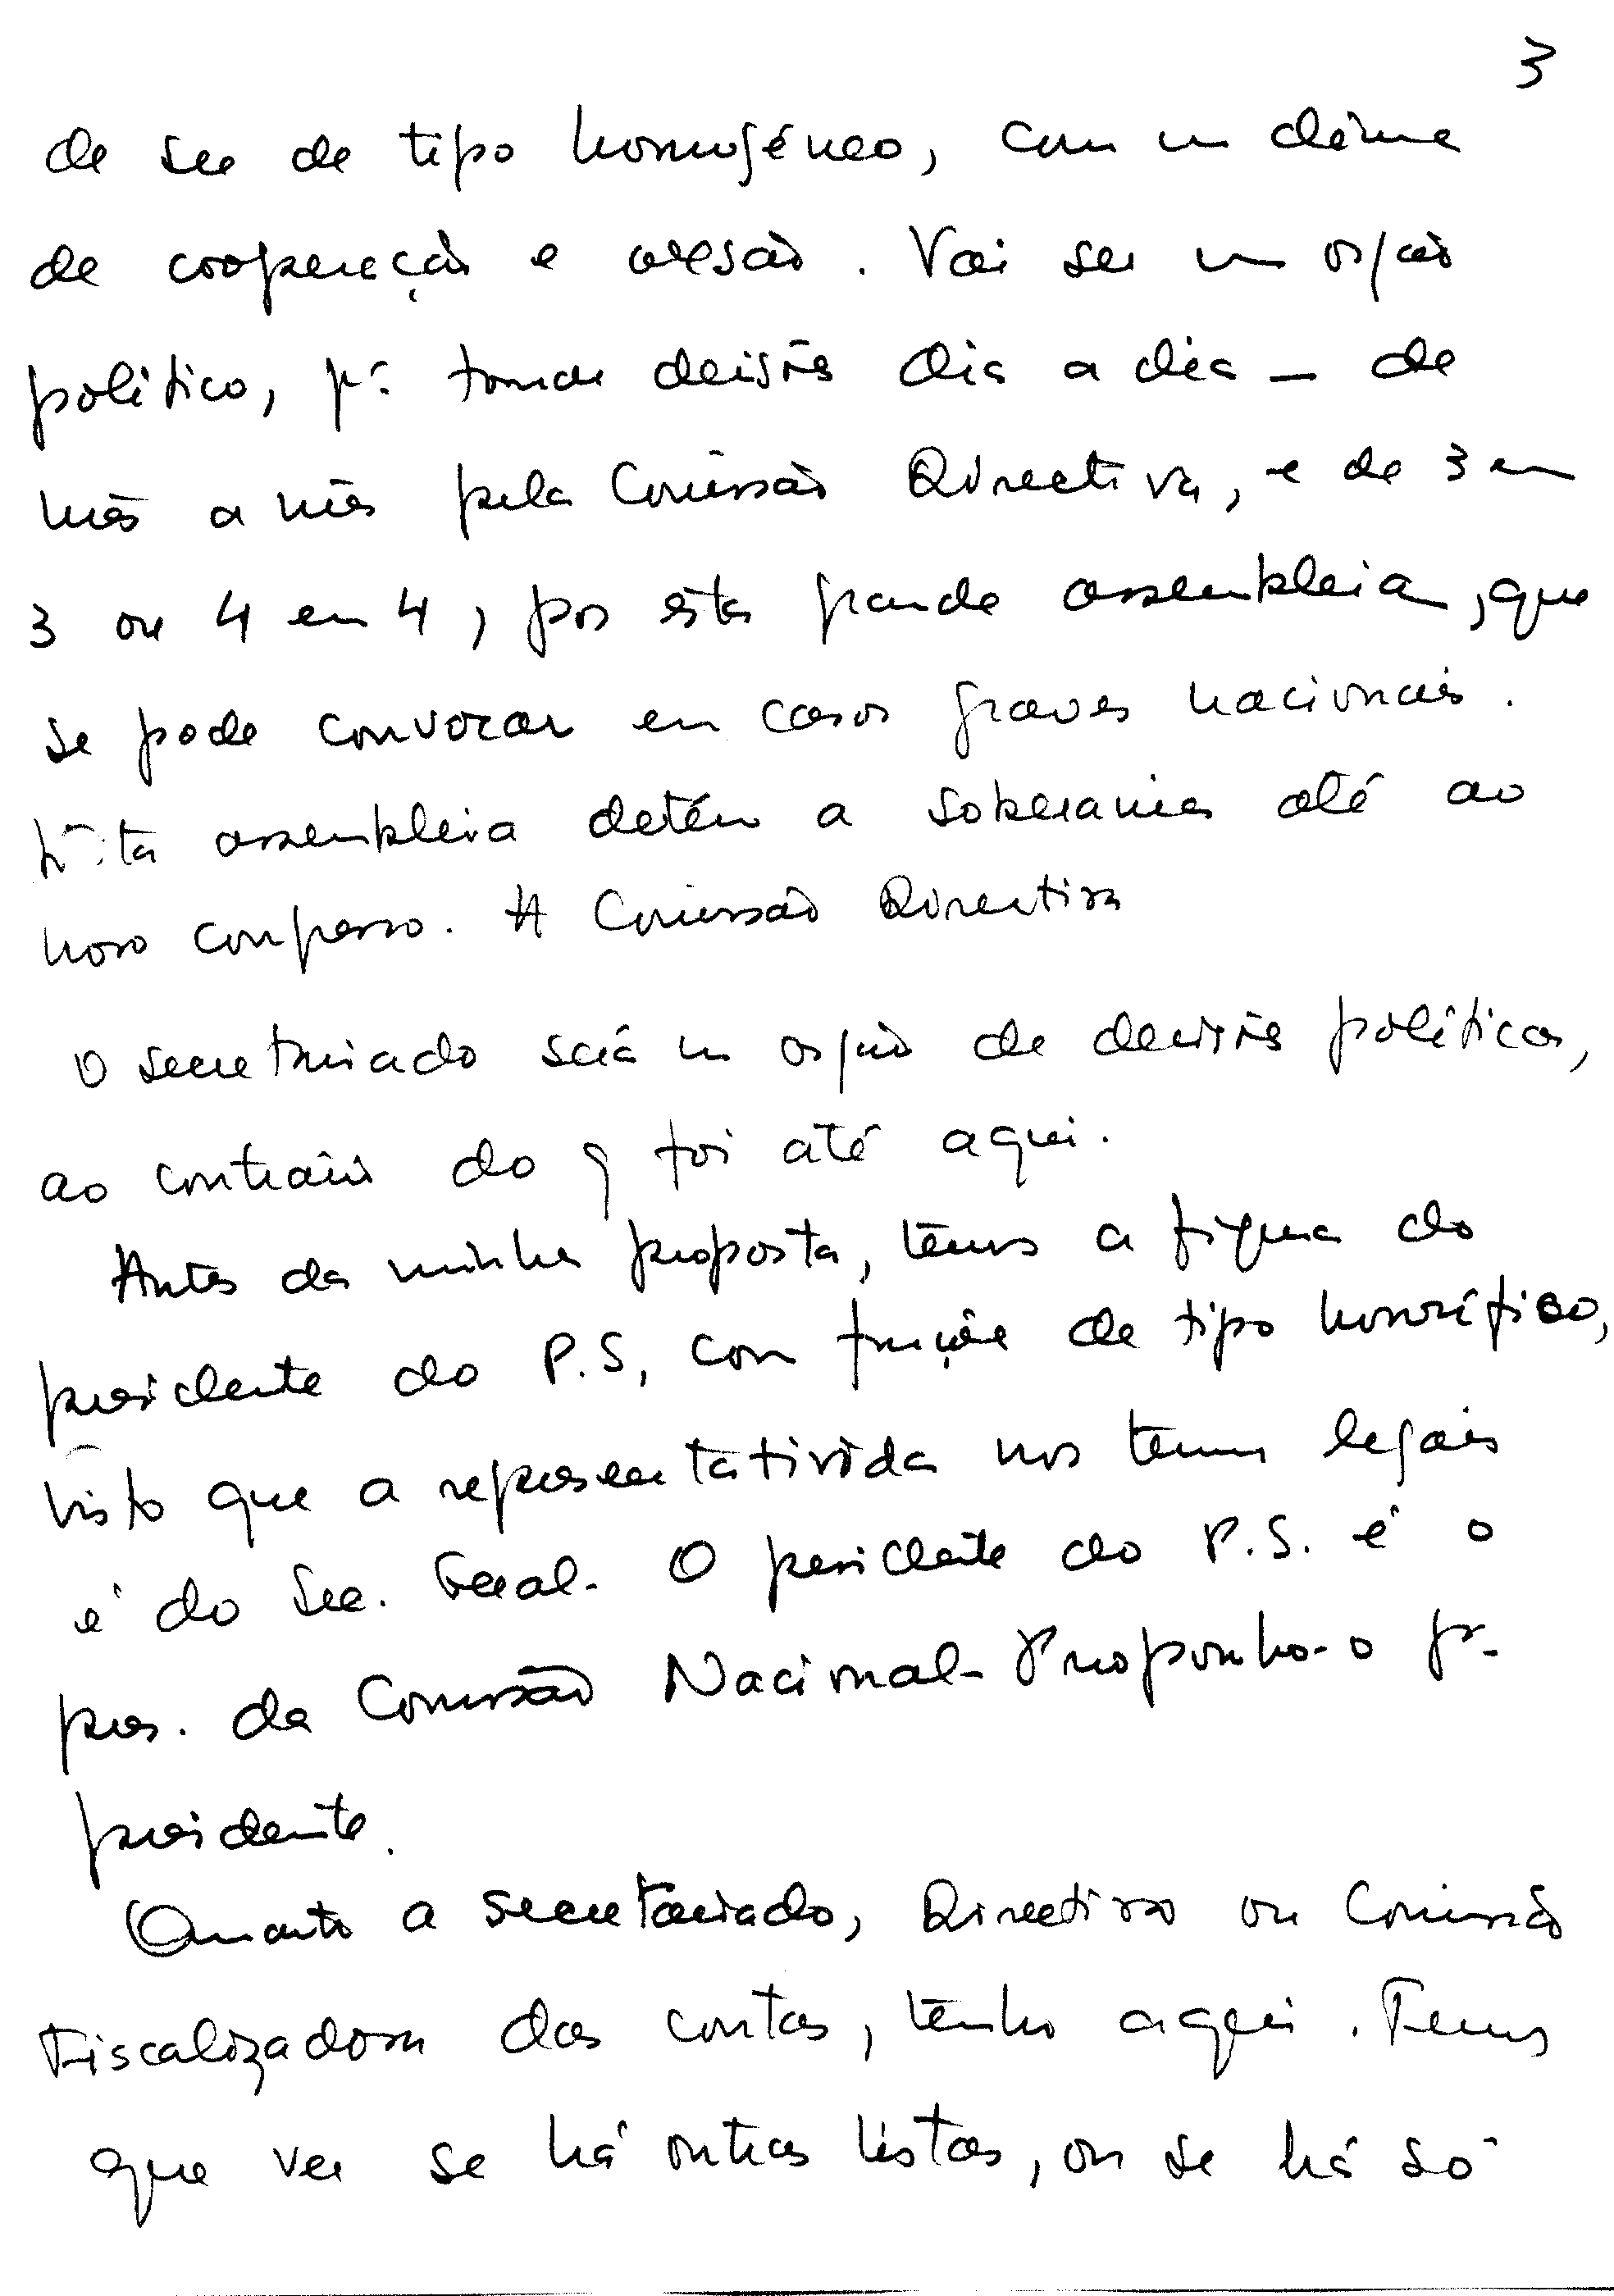 3
de ser de tipo homogéneo, com um clima
de cooperação e coesão. Vai ser um orgão
político, pª tomar decisões dia a dia – de
mês a mês pela Comissão Directiva, e de 3 em
3 ou 4 em 4, por esta grande assembleia, que
se pode convocar em casos graves nacionais.
Esta assembleia detém a soberania até ao
novo congresso. A Comissão Directiva
O secretariado será um orgão de decisões políticas,
ao contrário do q foi até aqui.
Antes da minha proposta, temos a figura do
presidente do P.S, com funções de tipo honorífico,
visto que a representativida nos termos legais
é do Sec. Geral. O presidente do P.S. é o
pres. da Comissão Nacional. Proponho-o pª
presidente.
Quanto a secretariado, Directiva ou Comissão
Fiscalizadora das contas, tenho aqui. Temos
que ver se há outras listas, ou se há só